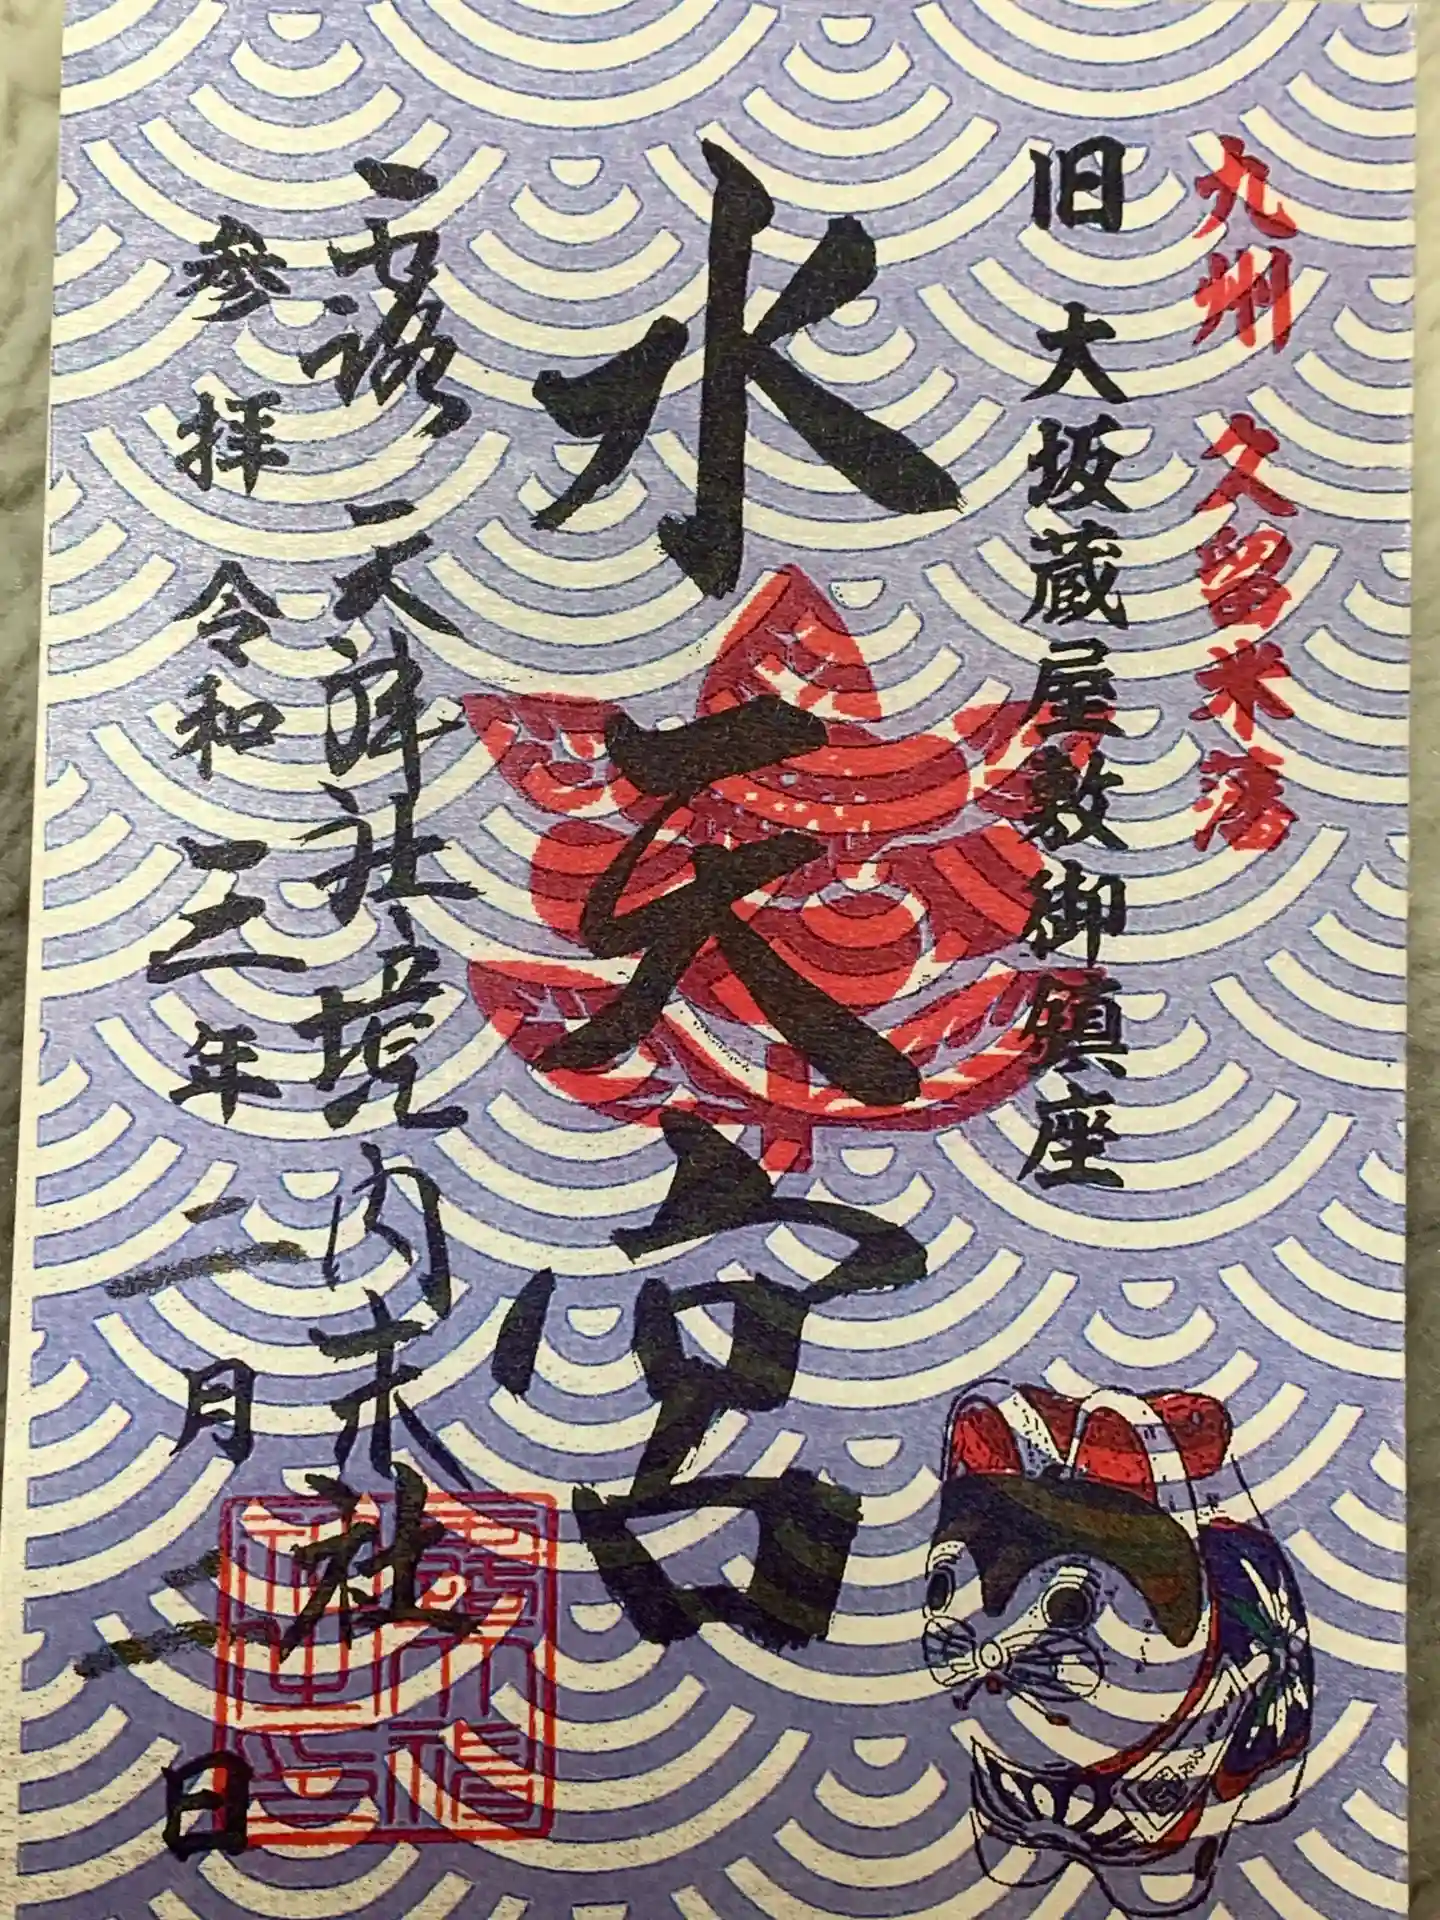 九州 久留米藩
旧 大坂蔵屋敷御鎮座
水天宮
露 天神社境内末社
参拝 令和三年二月二日